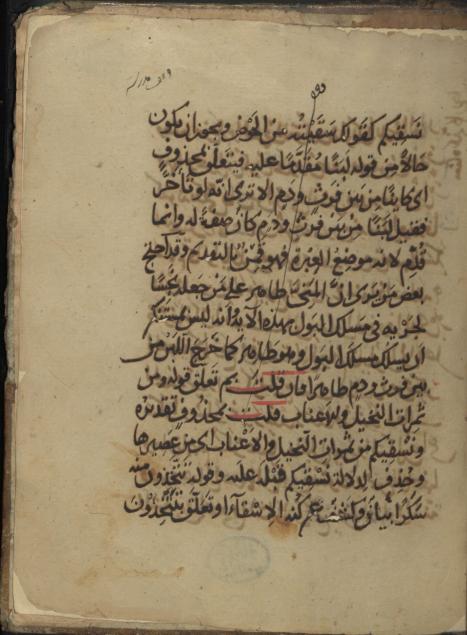 نسقيكم كقولك سقيته من الحوض ويجوز ان يكون
حالا من قوله لبنا مقدما عليه فيتعلق بمحذوف
اي كاينا من بين فرث ودم الا ترى انه لو تأخر
فقيل لبنا من بين فرث ودم كان صفة له وانما
قدم لانه موضع العبرة فهو قمن بالتقديم وقد احتج
بعض من يرى ان المني طاهر على من جعله نجسا
لجريه في مسلك البول بهذه الاية وانه ليس بمستنكر
ان يسلك مسلك البول وهو طاهر كما خرج اللبن من
بين فرث ودم طاهرا فان قلت بم تعلق قوله ومن
ثمرات النخيل والاعناب قلت بمحذوف تقديره
ونسقيكم من ثمرات النخيل والاعناب اي من عصيرها
وحذف لدلالة نسقيكم قبله عليه وقوله تتخذون منه
سكرا بيان وكشف عن كنه الاسقاء او تعلق بتتخذون